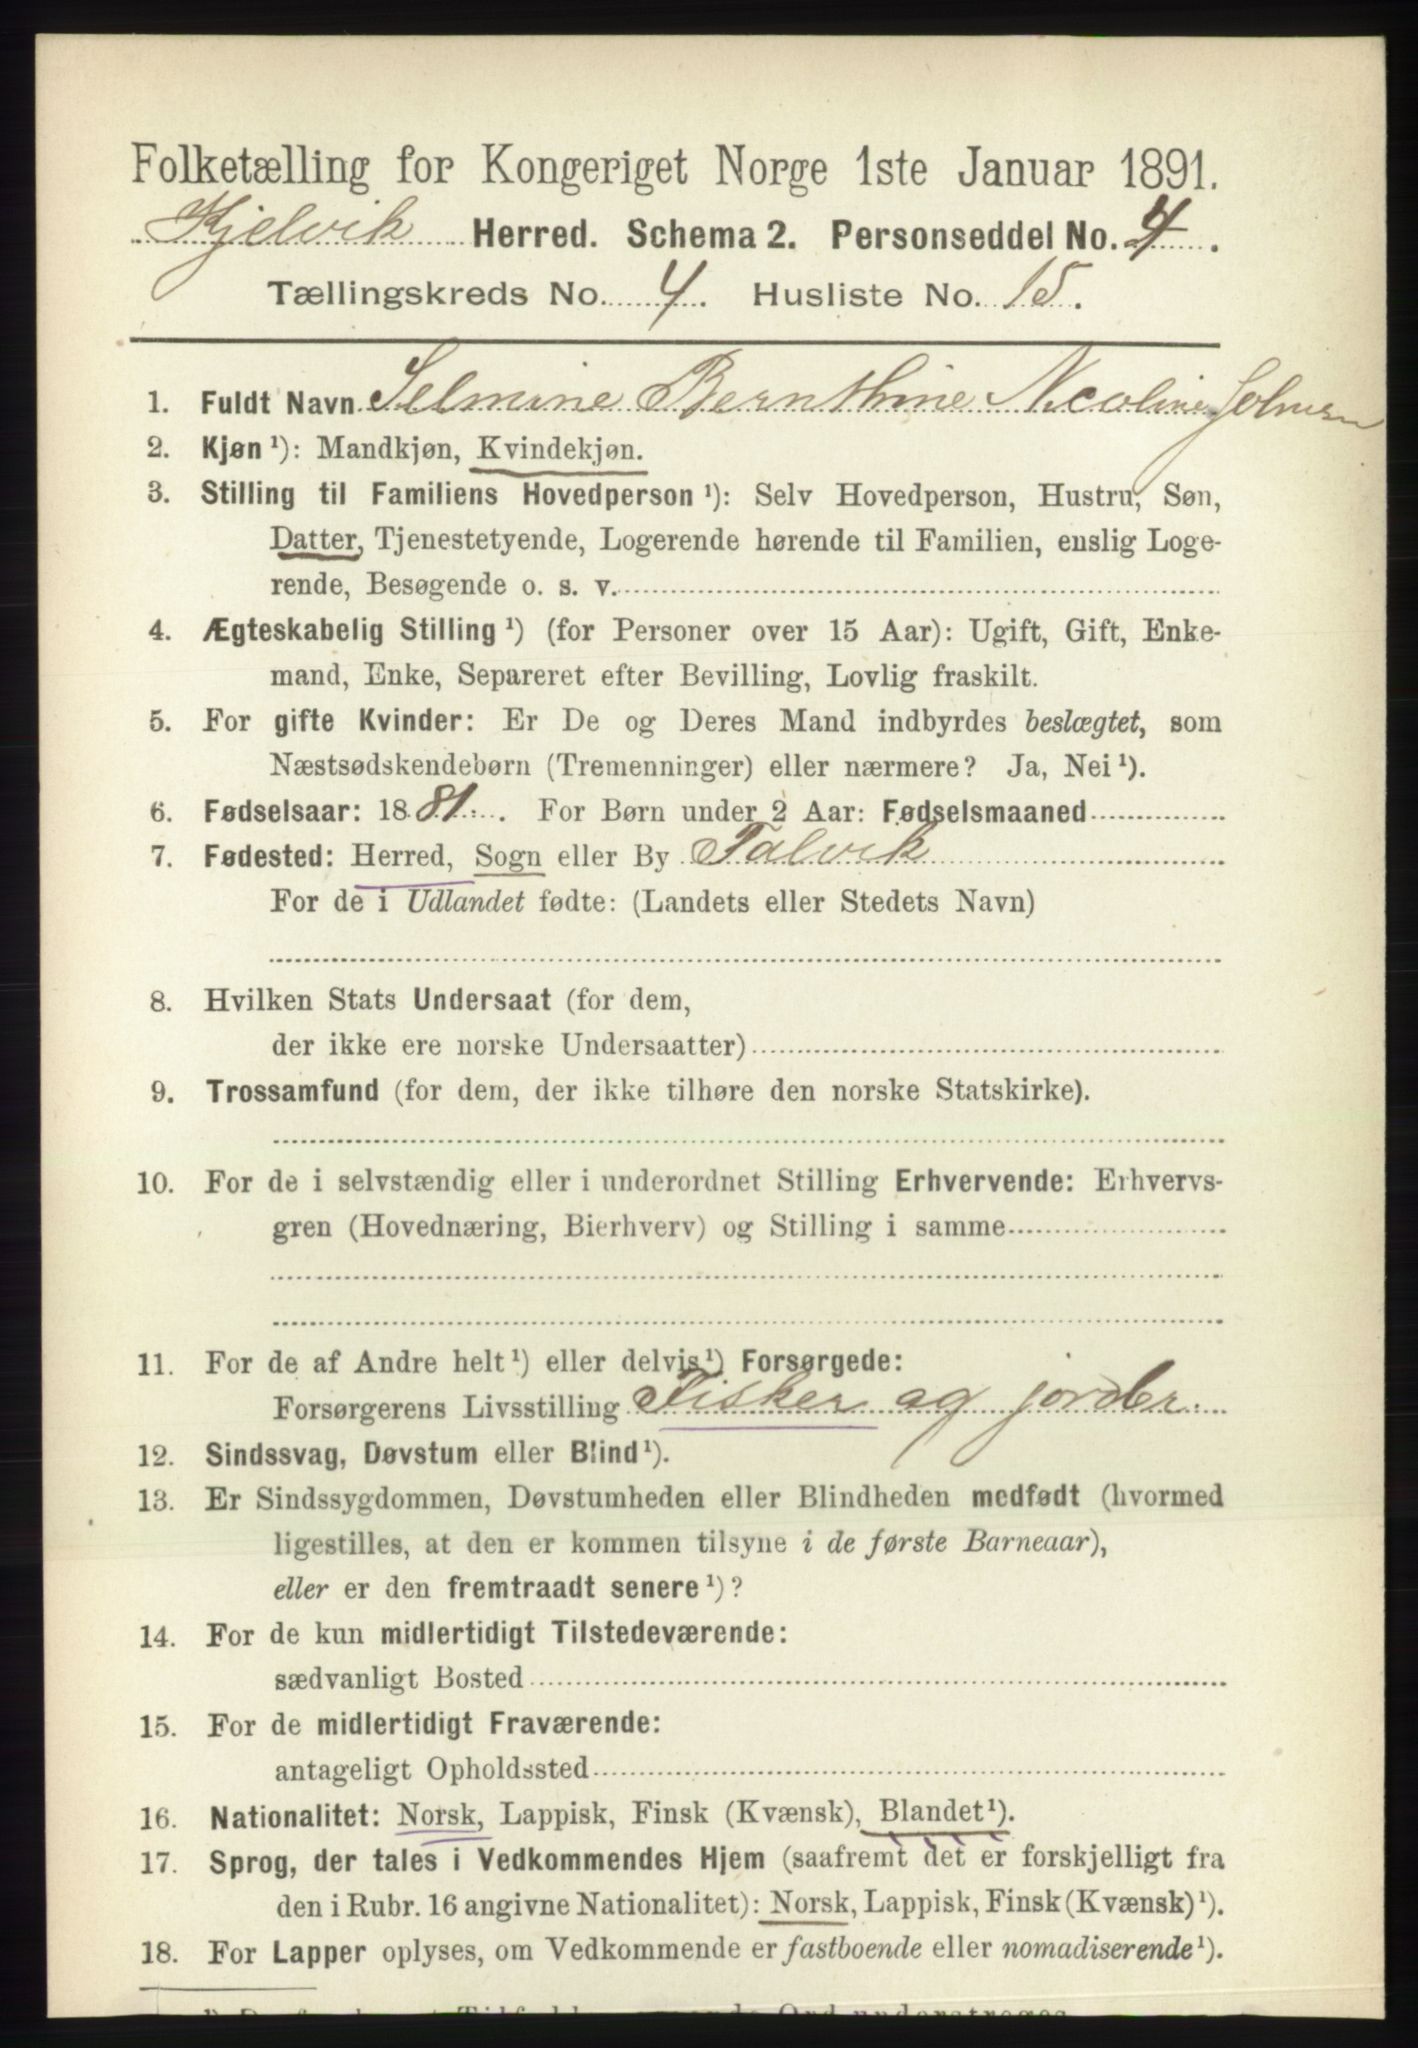 Folketælling for Kongeriget Norge 1ste Januar 1891.
Kjelvik Herred. Schema 2. Personseddel No. 4.
Tællingskreds No. 4. Husliste No. 15.
1. Fuldt Navn Selmine Bernthine Nicoline Johnsen
2. Kjøn ¹): Mandkjøn, Kvindekjøn.
3. Stilling til Familiens Hovedperson ¹): Selv Hovedperson, Hustru, Søn,
Datter, Tjenestetyende, Logerende hørende til Familien, enslig Loge-
rende, Besøgende o. s. v.
4. Ægteskabelig Stilling ¹) (for Personer over 15 Aar): Ugift, Gift, Enke-
mand, Enke, Separeret efter Bevilling, Lovlig fraskilt.
5. For gifte Kvinder: Er De og Deres Mand indbyrdes beslægtet, som
Næstsødskendebørn (Tremenninger) eller nærmere? Ja, Nei ¹).
6. Fødselsaar: 1881. For Børn under 2 Aar: Fødselsmaaned
7. Fødested: Herred, Sogn eller By Talvik
For de i Udlandet fødte: (Landets eller Stedets Navn)
8. Hvilken Stats Undersaat (for dem,
der ikke ere norske Undersaatter)
9. Trossamfund (for dem, der ikke tilhøre den norske Statskirke).
10. For de i selvstændig eller i underordnet Stilling Erhvervende: Erhvervs-
gren (Hovednæring, Bierhverv) og Stilling i samme
11. For de af Andre helt ¹) eller delvis ¹) Forsørgede:
Forsørgerens Livsstilling Fisker og jordbr.
12. Sindssvag, Døvstum eller Blind ¹).
13. Er Sindssygdommen, Døvstumheden eller Blindheden medfødt (hvormed
ligestilles, at den er kommen tilsyne i de første Barneaar),
eller er den fremtraadt senere ¹)?
14. For de kun midlertidigt Tilstedeværende:
sædvanligt Bosted
15. For de midlertidigt Fraværende:
antageligt Opholdssted
16. Nationalitet: Norsk, Lappisk, Finsk (Kvænsk), Blandet ¹).
17. Sprog, der tales i Vedkommendes Hjem (saafremt det er forskjelligt fra
den i Rubr. 16 angivne Nationalitet): Norsk, Lappisk, Finsk (Kvænsk) ¹).
18. For Lapper oplyses, om Vedkommende er fastboende eller nomadiserende ¹).